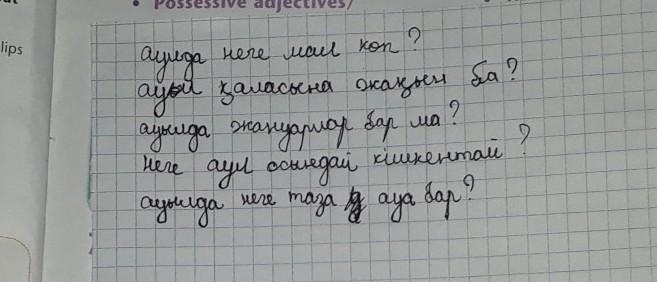 • Possessive adjectives/
lips
аулда неге мал коп?
ауыл қаласына жақын ба?
ауылда жануарлар бар ма?
неге аул осындай кішкентай?
ауылда неге таза ауа бар?